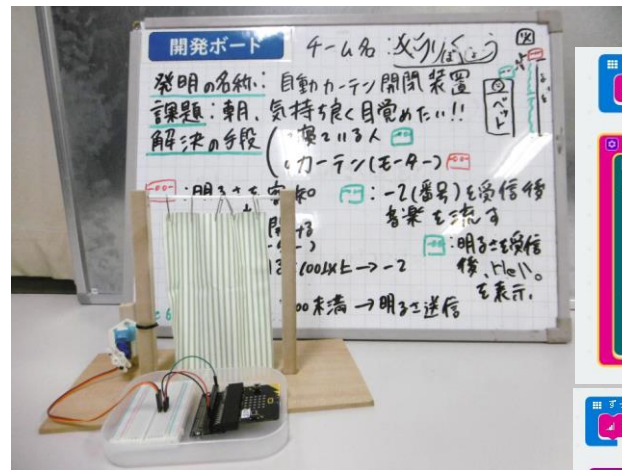 開発ボード
チーム名:
発明の名称: 自動カーテン開閉装置
課題: 朝、気持ち良く目覚めたい!!
解決の手段
寝ている人
カーテン(モーター)
ベット
: 明るさを
: -2(番号)を受信後
音楽を流す
: 明るさを受信
後、
を表示.
100以上→-2
00未満→明るさ送信